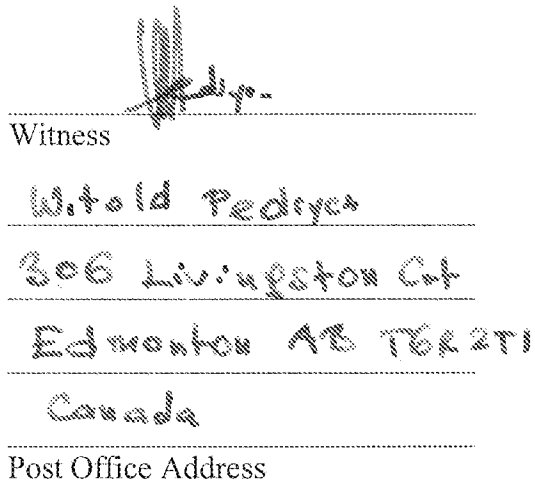 Witness
Witold Pedrycz
306 Livingston Cnt
Edmonton AB T6R 2T1
Canada
Post Office Address